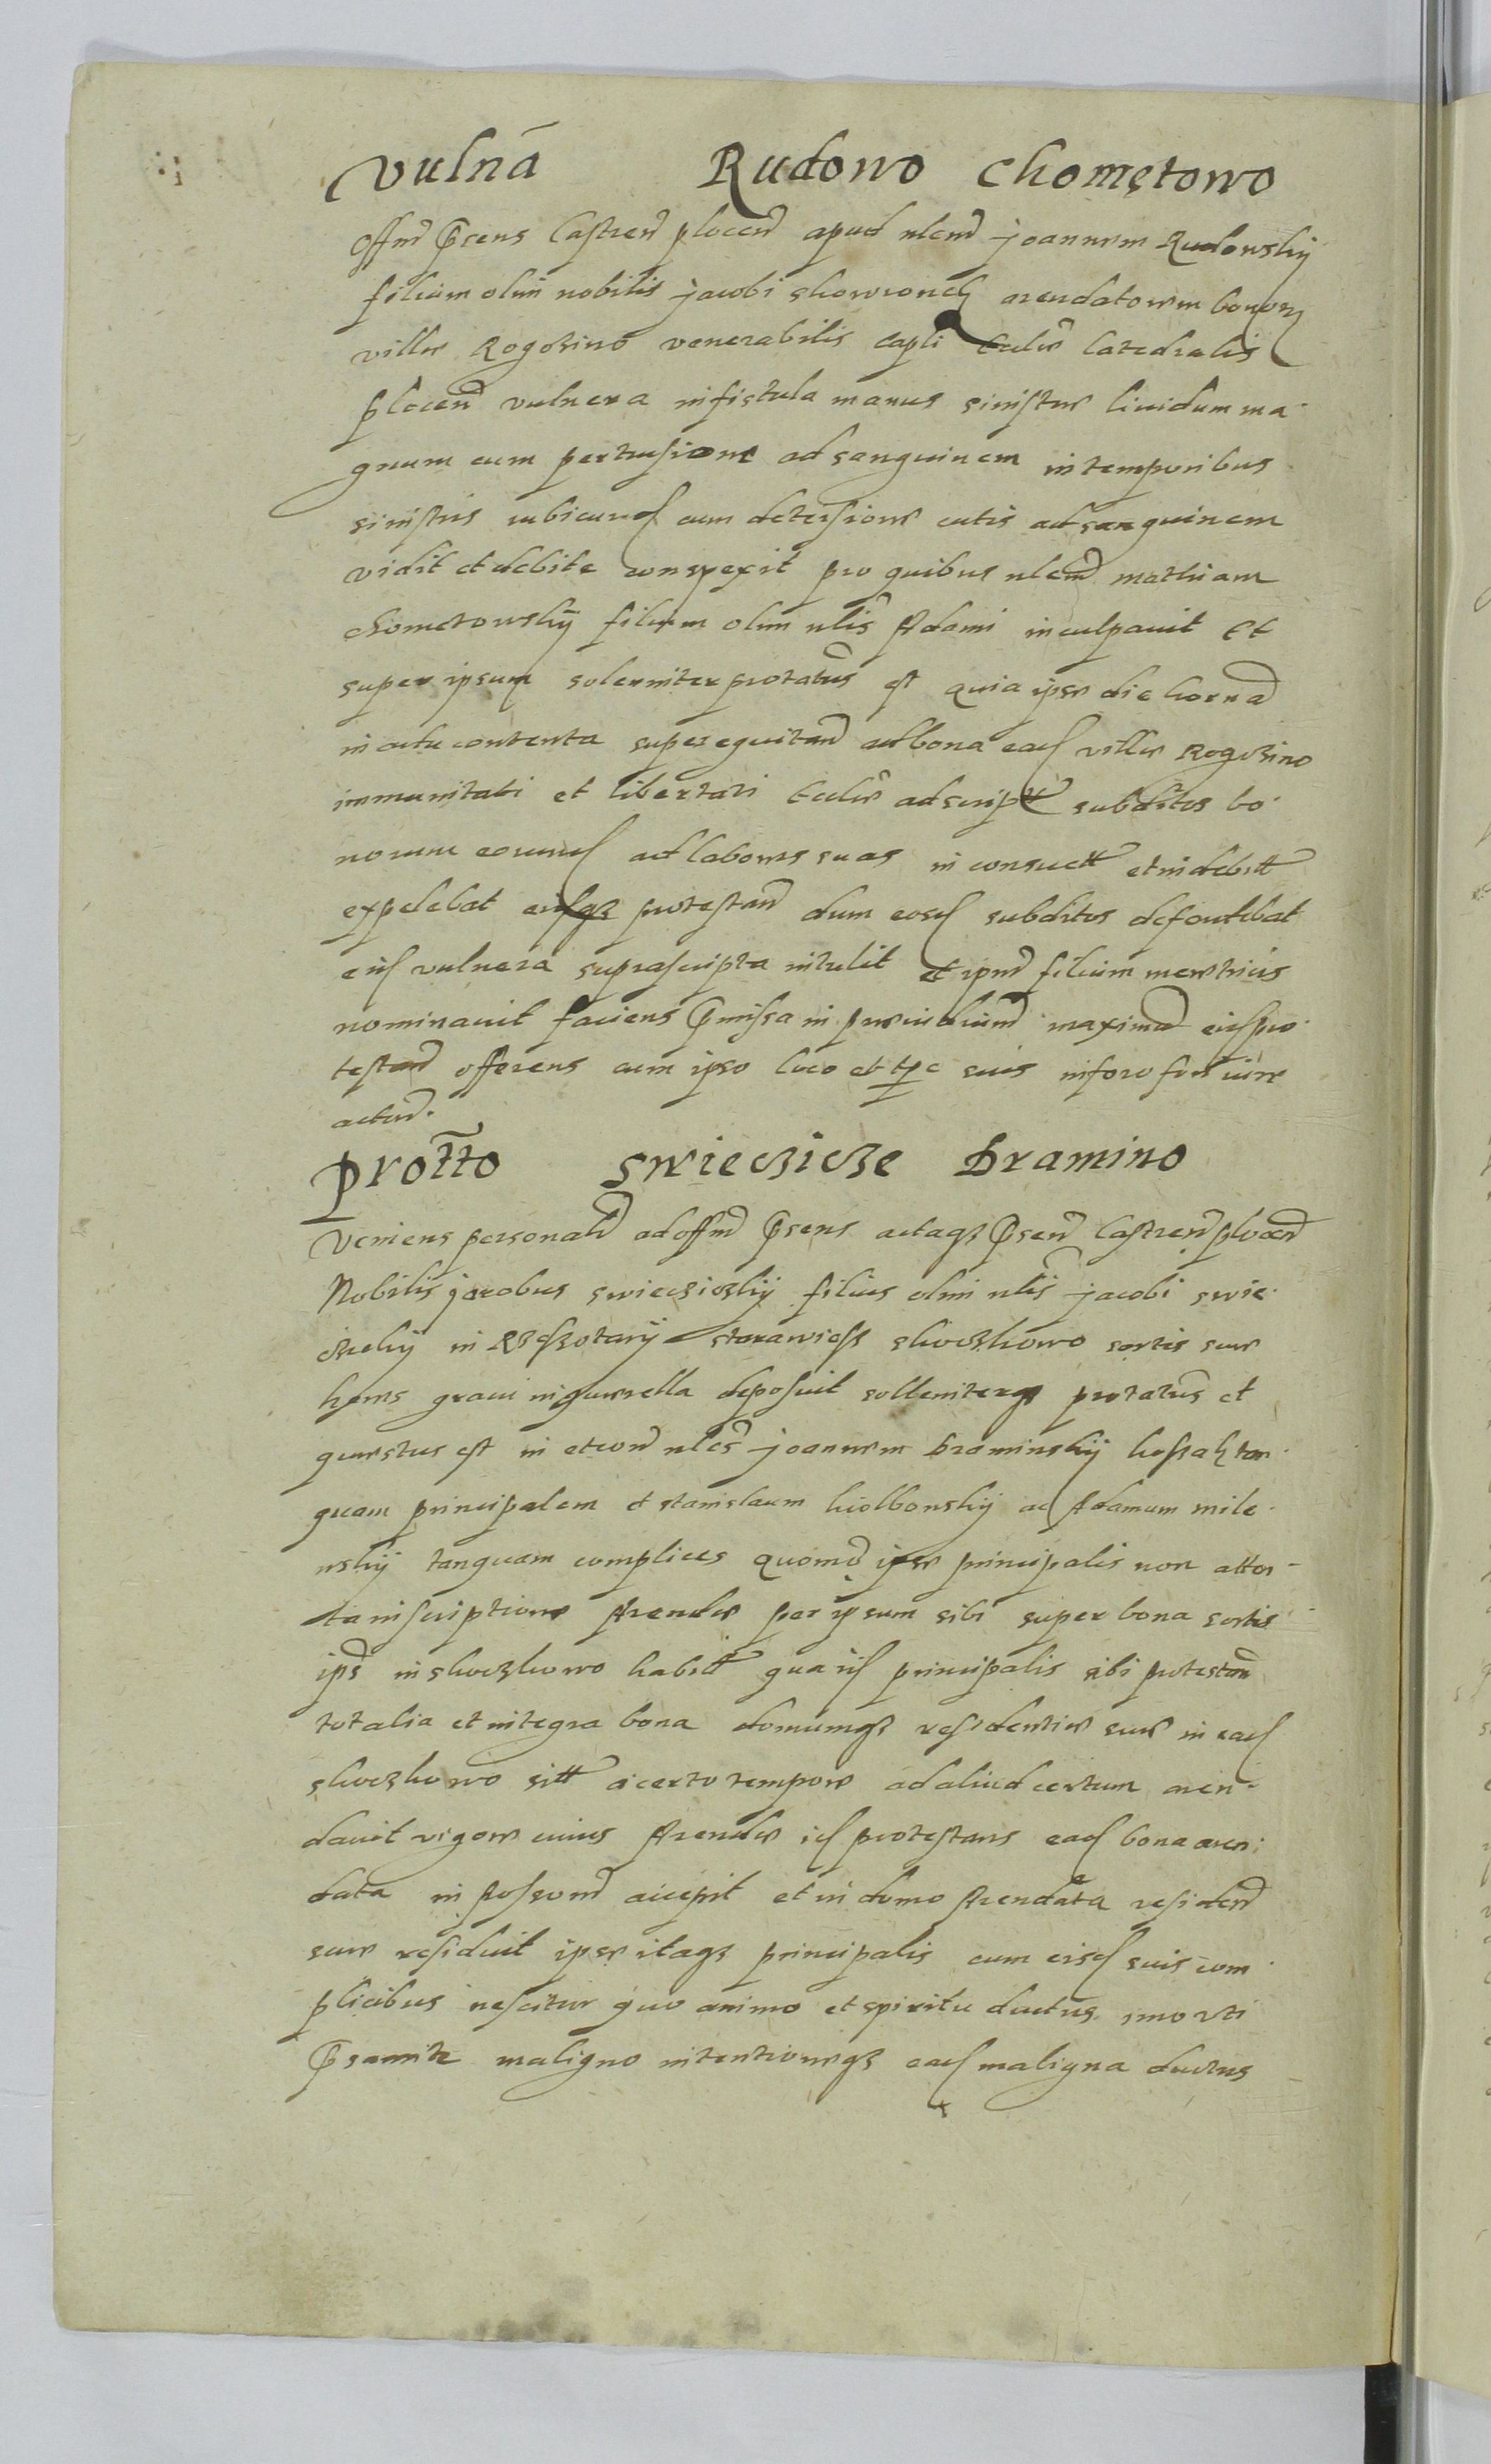 Vulnā Rudowo Chomętowo
Offm̄ p̄sens Castren̄ plocen̄ apud nlem̄ Joannem Rudowskij
filium olim nobilis Jacobi skowronek arendatorem bonor̄
villae Rogozino venerabilis Capli Eccliae Catedralis
plocen̄ vulnera in fistula manus sinistrae liuidum ma
gnum cum pertusione ad sanguinem in temporibus
sinistris rubicund cum detersione cutis ad sanguinem
vidit et debite conspexit pro quibus nlem̄ mathiam
chometowskij filium olim nlis Adami inculpauit Et
super ipsum solemniter protatus est quia ipse die horna
in actu contenta superequitan̄ ad bona ead villae Rogozino
immunitati et libertati Eccliae adscript subditos bo
norum eorund ad labores suas in consuett et indebitt
expelebat eusqz protestan̄ dum eosd subditos defendebat
eid vulnera suprascripta intulit et ipm̄ filium meretricis
nominauit faciens p̄missa in preiudicium̄ maximū eiusd pro
testan̄ offerens cum ipso loco et tpe suis in foro fori iure
actur̄.
Protto Swieczicze Bramino
Veniens personalr̄ ad offm̄ p̄sens actaqz p̄sen̄ Castren̄ plocen̄
Nobilis Jacobus swiecziczkij filius olim nlis Jacobi swie
czickij in Rzeszotarij starawiess skoczkowo sortis suae
haeres graui in querella deposuit sollenniterqz protatus et
questus est in et con̄ nles Joannem braminskij kossak tan
quam principalem et stanislaum kiolbowskij ac Adamum mile
wskij tanquam complices quomo ipse principalis non atten
ta inscriptione Arendae per ipsum sibi super bona sortis
ips̄ in skoczkowo habitt qua id principalis sibi protestan̄
totalia et integra bona domumqz residentiae suae in ead
skoczkowo sitt a certo tempore ad aliud certum aren
dauit vigore cuius Arendae id protestans ead bona aren
data in possionm̄ accepit et in domo Arendata residen̄
suae residuit ipse itaqz principalis cum eisd suis com
plicibus nescitur quo animo et spiritu ductus imo uti
p̄samitr maligno intentioneqz ead maligna ductus